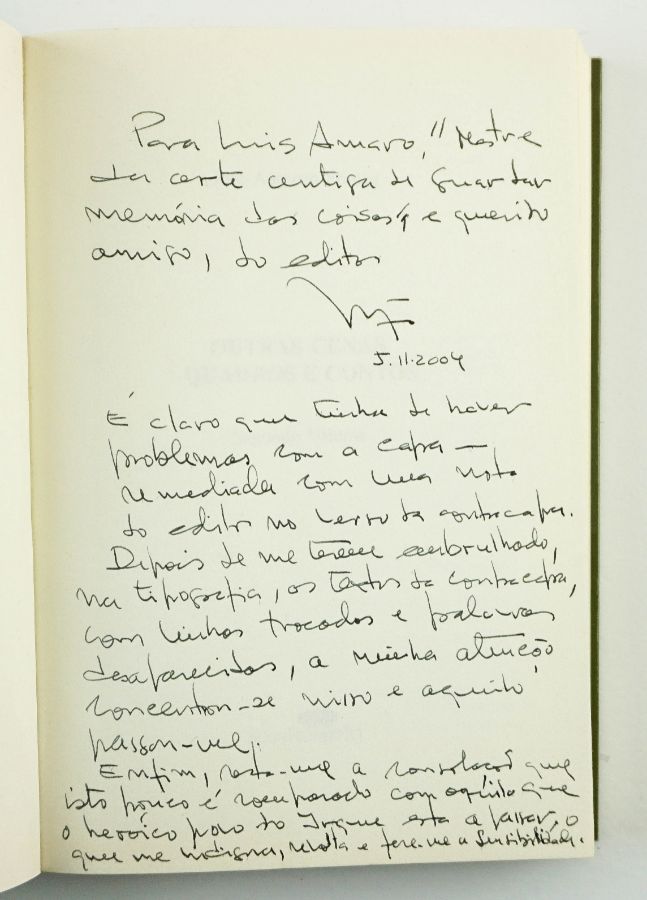 Para Luis Amaro, "Mestre
da arte antiga de guardar
memória das coisas", e querido
amigo, do editor
5.11.2004
É claro que tinha de haver
problemas com a capa —
remediada com uma nota
do editor no verso da contracapa.
Depois de me terem embrulhado,
na tipografia, os textos da contracapa,
com linhas trocadas e palavras
desaparecidas, a minha atenção
concentrou-se nisso e aquilo
passou-me.
Enfim, resta-me a consolação que
isto pouco é comparado com aquilo que
o heróico povo do Iraque está a passar, o
que me indigna, revolta e fere-me a sensibilidade.